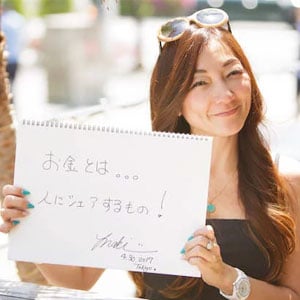 お金とは...
人にシェアするもの!
4.30.2017
Tokyo.